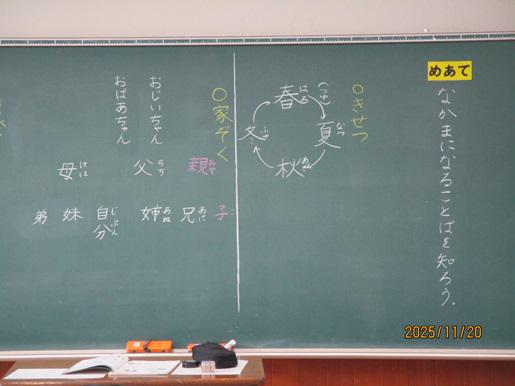 めあて
なかまになることばを知ろう。
○きせつ
春 はる
夏 なつ
秋 あき
冬 ふゆ
○家ぞく
親 おや
父 ちち
母 はは
おじいちゃん
おばあちゃん
子 こ
兄 あに
姉 あね
自分 じぶん
妹
弟
2025/11/20